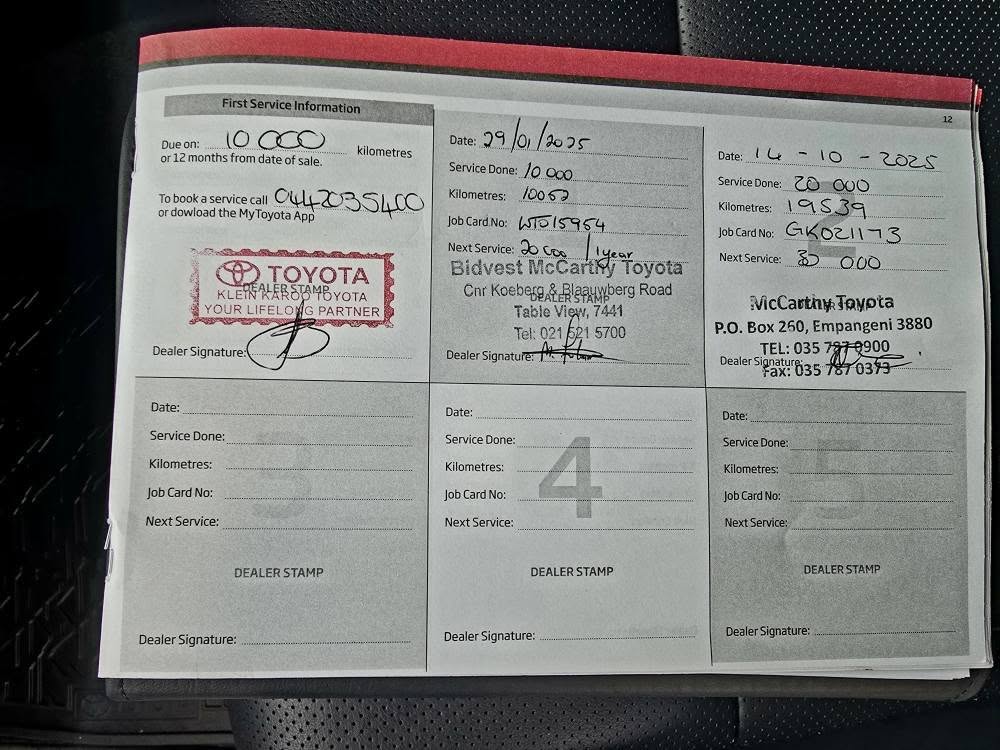 12
First Service Information
Due on: 10 000 kilometres
or 12 months from date of sale.
To book a service call 0442035400
or dowload the MyToyota App
TOYOTA
DEALER STAMP
KLEIN KAROO TOYOTA
YOUR LIFELONG PARTNER
Dealer Signature:
Date: 29/01/2025
Service Done: 10 000
Kilometres: 10052
Job Card No: WTJ15954
Next Service: 20 000 / 1 year
Bidvest McCarthy Toyota
Cnr Koeberg & Blaauwberg Road
DEALER STAMP
Table View, 7441
Tel: 021 521 5700
Dealer Signature:
Date: 14 - 10 - 2025
Service Done: 20 000
Kilometres: 19539
Job Card No: GK021173
2
Next Service: 30 000
McCarthy Toyota
P.O. Box 260, Empangeni 3880
TEL: 035 787 0900
Dealer Signature:
Fax: 035 787 0373
Date:
Service Done:
3
Kilometres:
Job Card No:
Next Service:
DEALER STAMP
Dealer Signature:
Date:
Service Done:
4
Kilometres:
Job Card No:
Next Service:
DEALER STAMP
Dealer Signature:
Date:
Service Done:
5
Kilometres:
Job Card No:
Next Service:
DEALER STAMP
Dealer Signature: